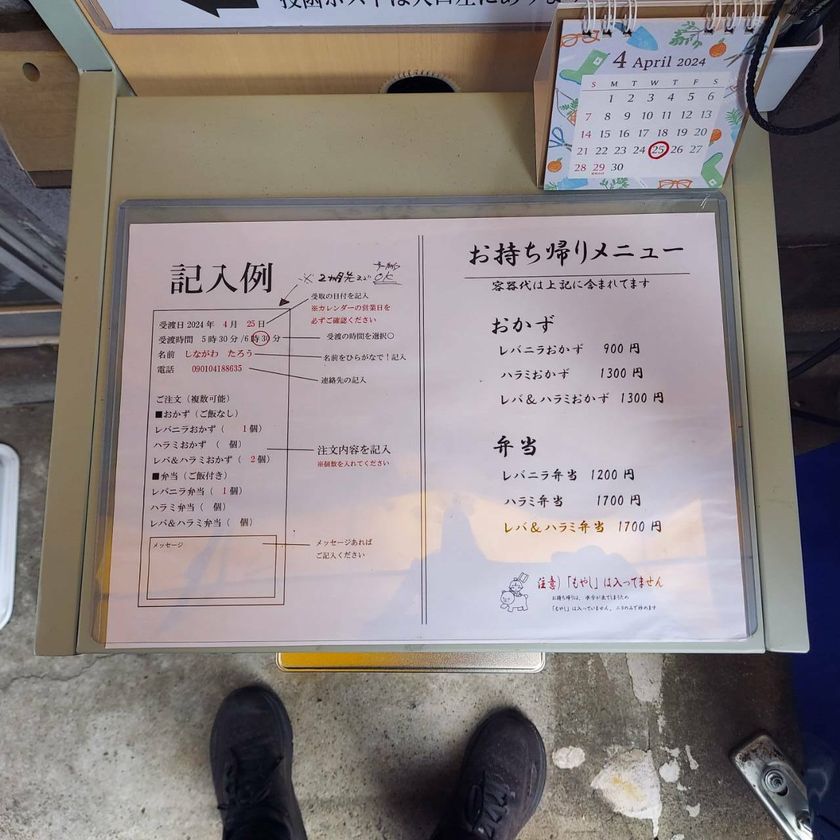 4 April 2024
S M T W T F S
1 2 3 4 5 6
7 8 9 10 11 12 13
14 15 16 17 18 19 20
21 22 23 24 25 26 27
28 29 30
記入例
OK
受取の日付を記入
※カレンダーの営業日を
必ずご確認ください
受渡日 2024年 4月 25日
受渡時間 5時30分/6時30分
受渡の時間を選択○
名前 しながわ たろう
名前をひらがなで!記入
電話 090104188635
連絡先の記入
ご注文(複数可能)
■おかず(ご飯なし)
レバニラおかず( 1個)
ハラミおかず( 個)
レバ&ハラミおかず( 2個)
■弁当(ご飯付き)
レバニラ弁当( 1個)
ハラミ弁当( 個)
レバ&ハラミ弁当( 個)
注文内容を記入
※個数を入れてください
メッセージ
メッセージあれば
ご記入ください
お持ち帰りメニュー
容器代は上記に含まれてます
おかず
レバニラおかず 900円
ハラミおかず 1300円
レバ&ハラミおかず 1300円
弁当
レバニラ弁当 1200円
ハラミ弁当 1700円
レバ&ハラミ弁当 1700円
注意)「もやし」は入ってません
お持ち帰りは、水分が出てしまうため
「もやし」は入っていません。ニラのみで炒めます